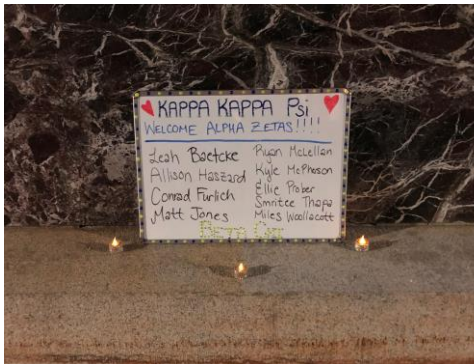 KAPPA KAPPA Psi
WELCOME ALPHA ZETAS!!!!
Leah Baetcke
Allison Haszard
Conrad Furlich
Matt Jones
Ryan McLellan
Kyle McPherson
Ellie Praber
Smritee Thapa
Miles Woollacott
BETA CHI